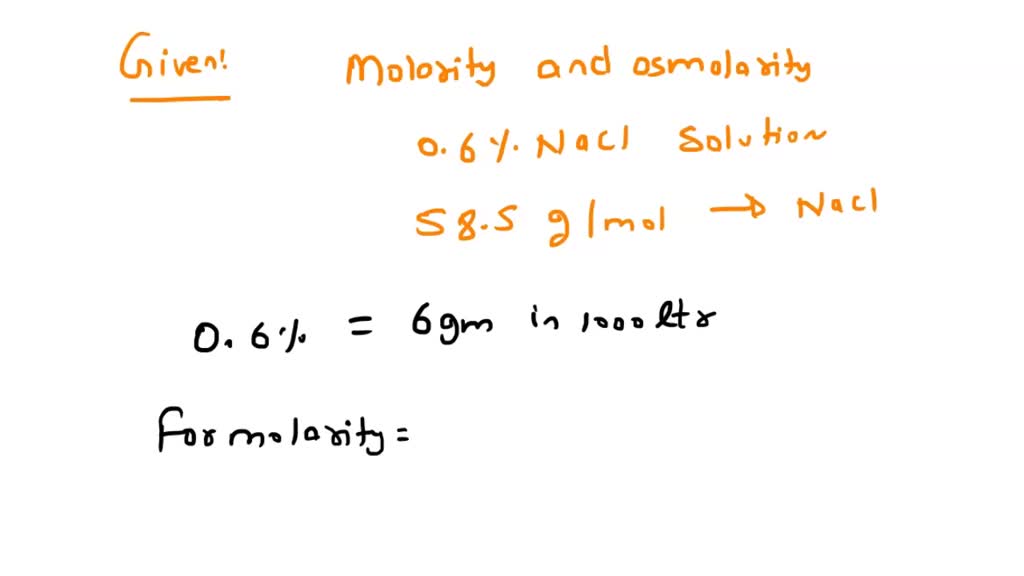 Given!
Molority and osmolarity
0.6%. Nacl Solution
58.5 g/mol → Nacl
0.6% = 6gm in 1000 ltr
For molarity =